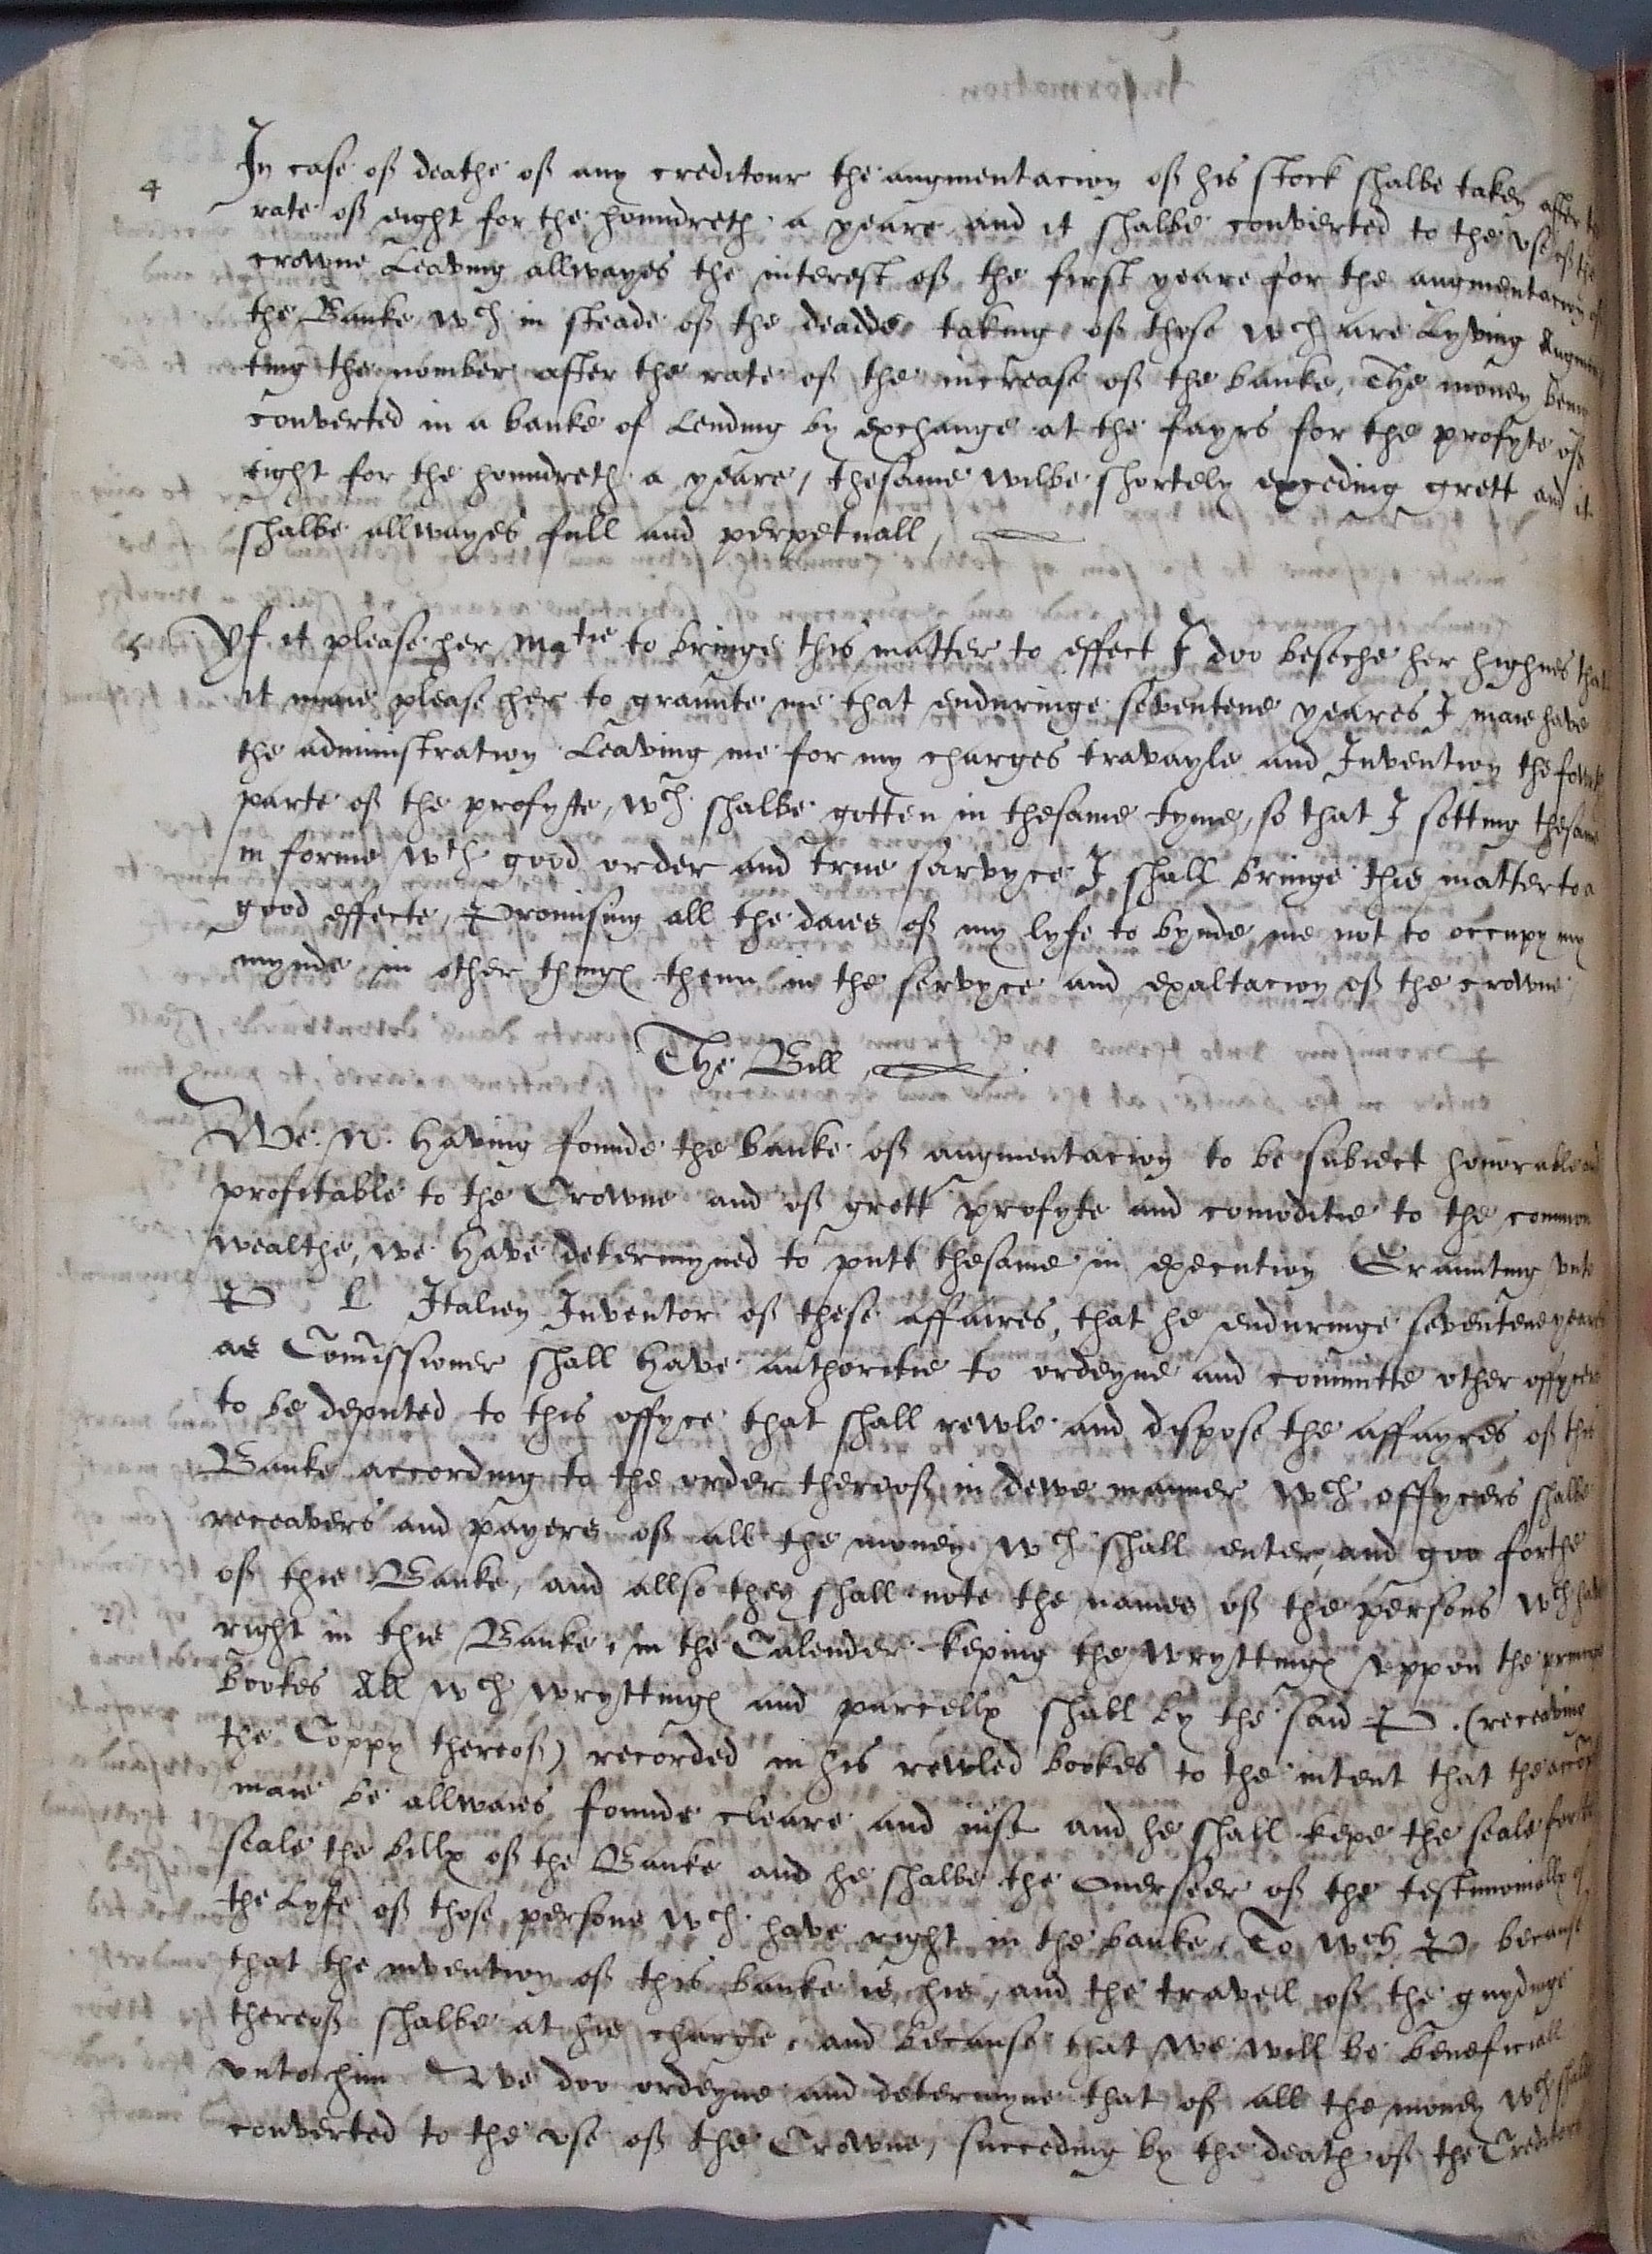 4 In case of deathe of any creditour the augmentacion of his stock shalbe taken after
rate of eight for the hounndreth a yeare and it shalbe converted to the vse of the
crowne Leaving allwayes the interest of the first yeare for the augmentacion of
the Banke wch in steade of the deadde, taking of those wch are Lyving Augmen
ting the nomber after the rate of the increase of the banke, The money beinge
converted in a banke of Lending by exchange at the fayrs for the profyte of
eight for the hounndreth a yeare, thesame wilbe shortely exceding grett and it
shalbe allwayes full and perpetuall,
5 Yf it please her Matie to bringe this matter to effect I doo beseche her highnes that
it maie please her to graunte me that enduringe seventene yeares I maie have
the administration Leaving me for my charges travayle and Invention the
parte of the profyte, wch shalbe gotten in thesame tyme, so that I setting thesame
in forme wth good order and true sarvyce I shall bringe this matter to a
good effecte, Promising all the daies of my lyfe to bynde me not to occupy my
mynde in other things thenn in the servyce and exaltacion of the crowne
The Bill
We. N. having founde the banke of augmentacion to be subiect honorable and
profitable to the Crowne and of grett profyte and comoditie to the common
wealthe, we have determyned to putt thesame in execution Graunting vnto
P L Italien Inventor of these affaires, that he enduringe seventene yeares
as Comissioner shall have authoritie to ordeyne and committe other offycers
to be deputed to this offyce that shall rewle and dispose the affayres of this
Banke according to the order thereof in dewe manner wch offycers shalbe
receavers and payers of all the money wch shall enter, and goo forthe
of this Banke, and allso they shall note the names of the persons wch have
right in this Banke, in the Calender keping the wryttings vppon the
bookes All wch wryttings and parcells shall by the said P. (receavinge
the Coppy thereof) recorded in his rewled bookes to the intent that the
maie be allwaies founde cleare and iust and he shall kepe the seale for to
seale the bills of the Banke and he shalbe the Overseer of the testimonialls of
the Lyfe of those persons wch have right in the banke, To wch P. because
that the invention of this banke is his, and the travell of the guydinge
thereof shalbe at his charge, and because that we will be beneficiall
vnto him We doo ordeyne and determyne that of all the money wch shalbe
converted to the vse of the Crowne, succeding by the death of the Creditors